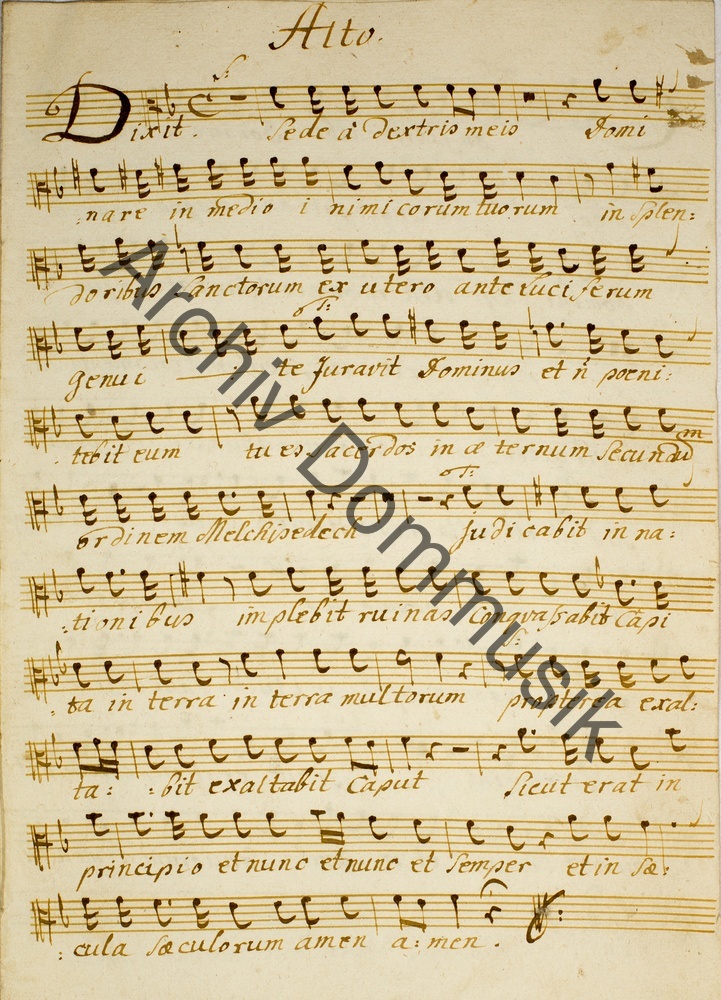 Alto.
Dixit. Sede a dextris meis Domi
nare in medio i nimicorum tuorum in splen:
doribus Sanctorum ex utero ante luciferum
genui te Juravit Dominus et n̄ poeni:
tebit eum tu es Sacerdos in æ ternum Secundũ
ordinem Melchisedech Judicabit in na:
:tionibus implebit ruinas Conquassabit Capi
ta in terra in terra multorum propterea exal:
ta: :bit exaltabit Caput Sicut erat in
principio et nunc et nunc et Semper et in Sæ:
:cula Sæculorum amen a:men.
Archiv Dommusik